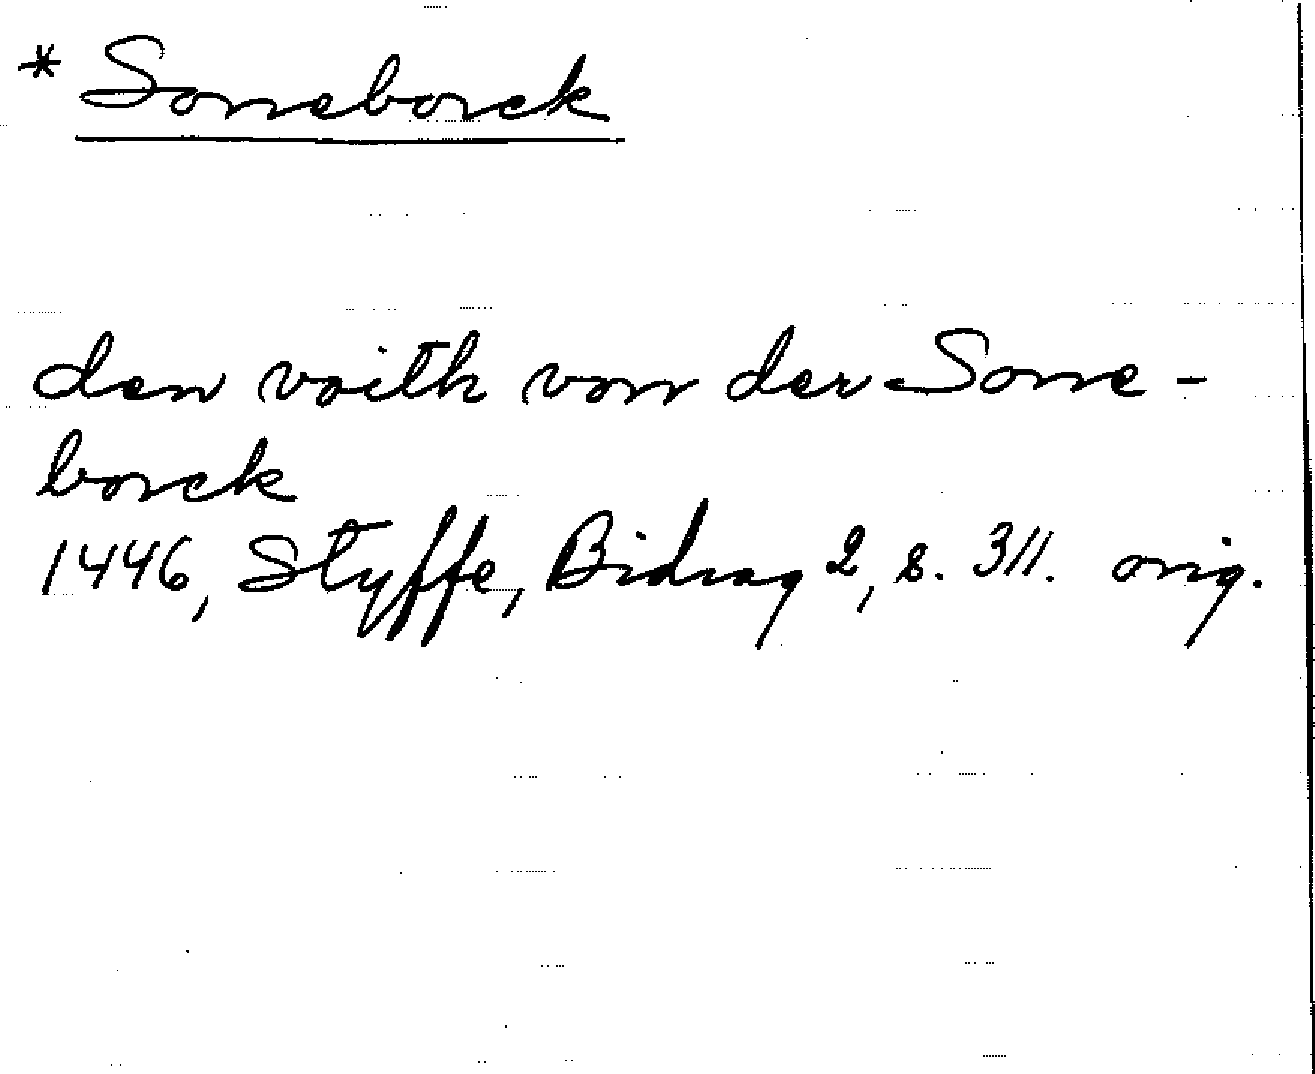 * Soneborck
den voith von der Sone-
borck
1446, Styffe, Bidrag 2, s. 311. orig.